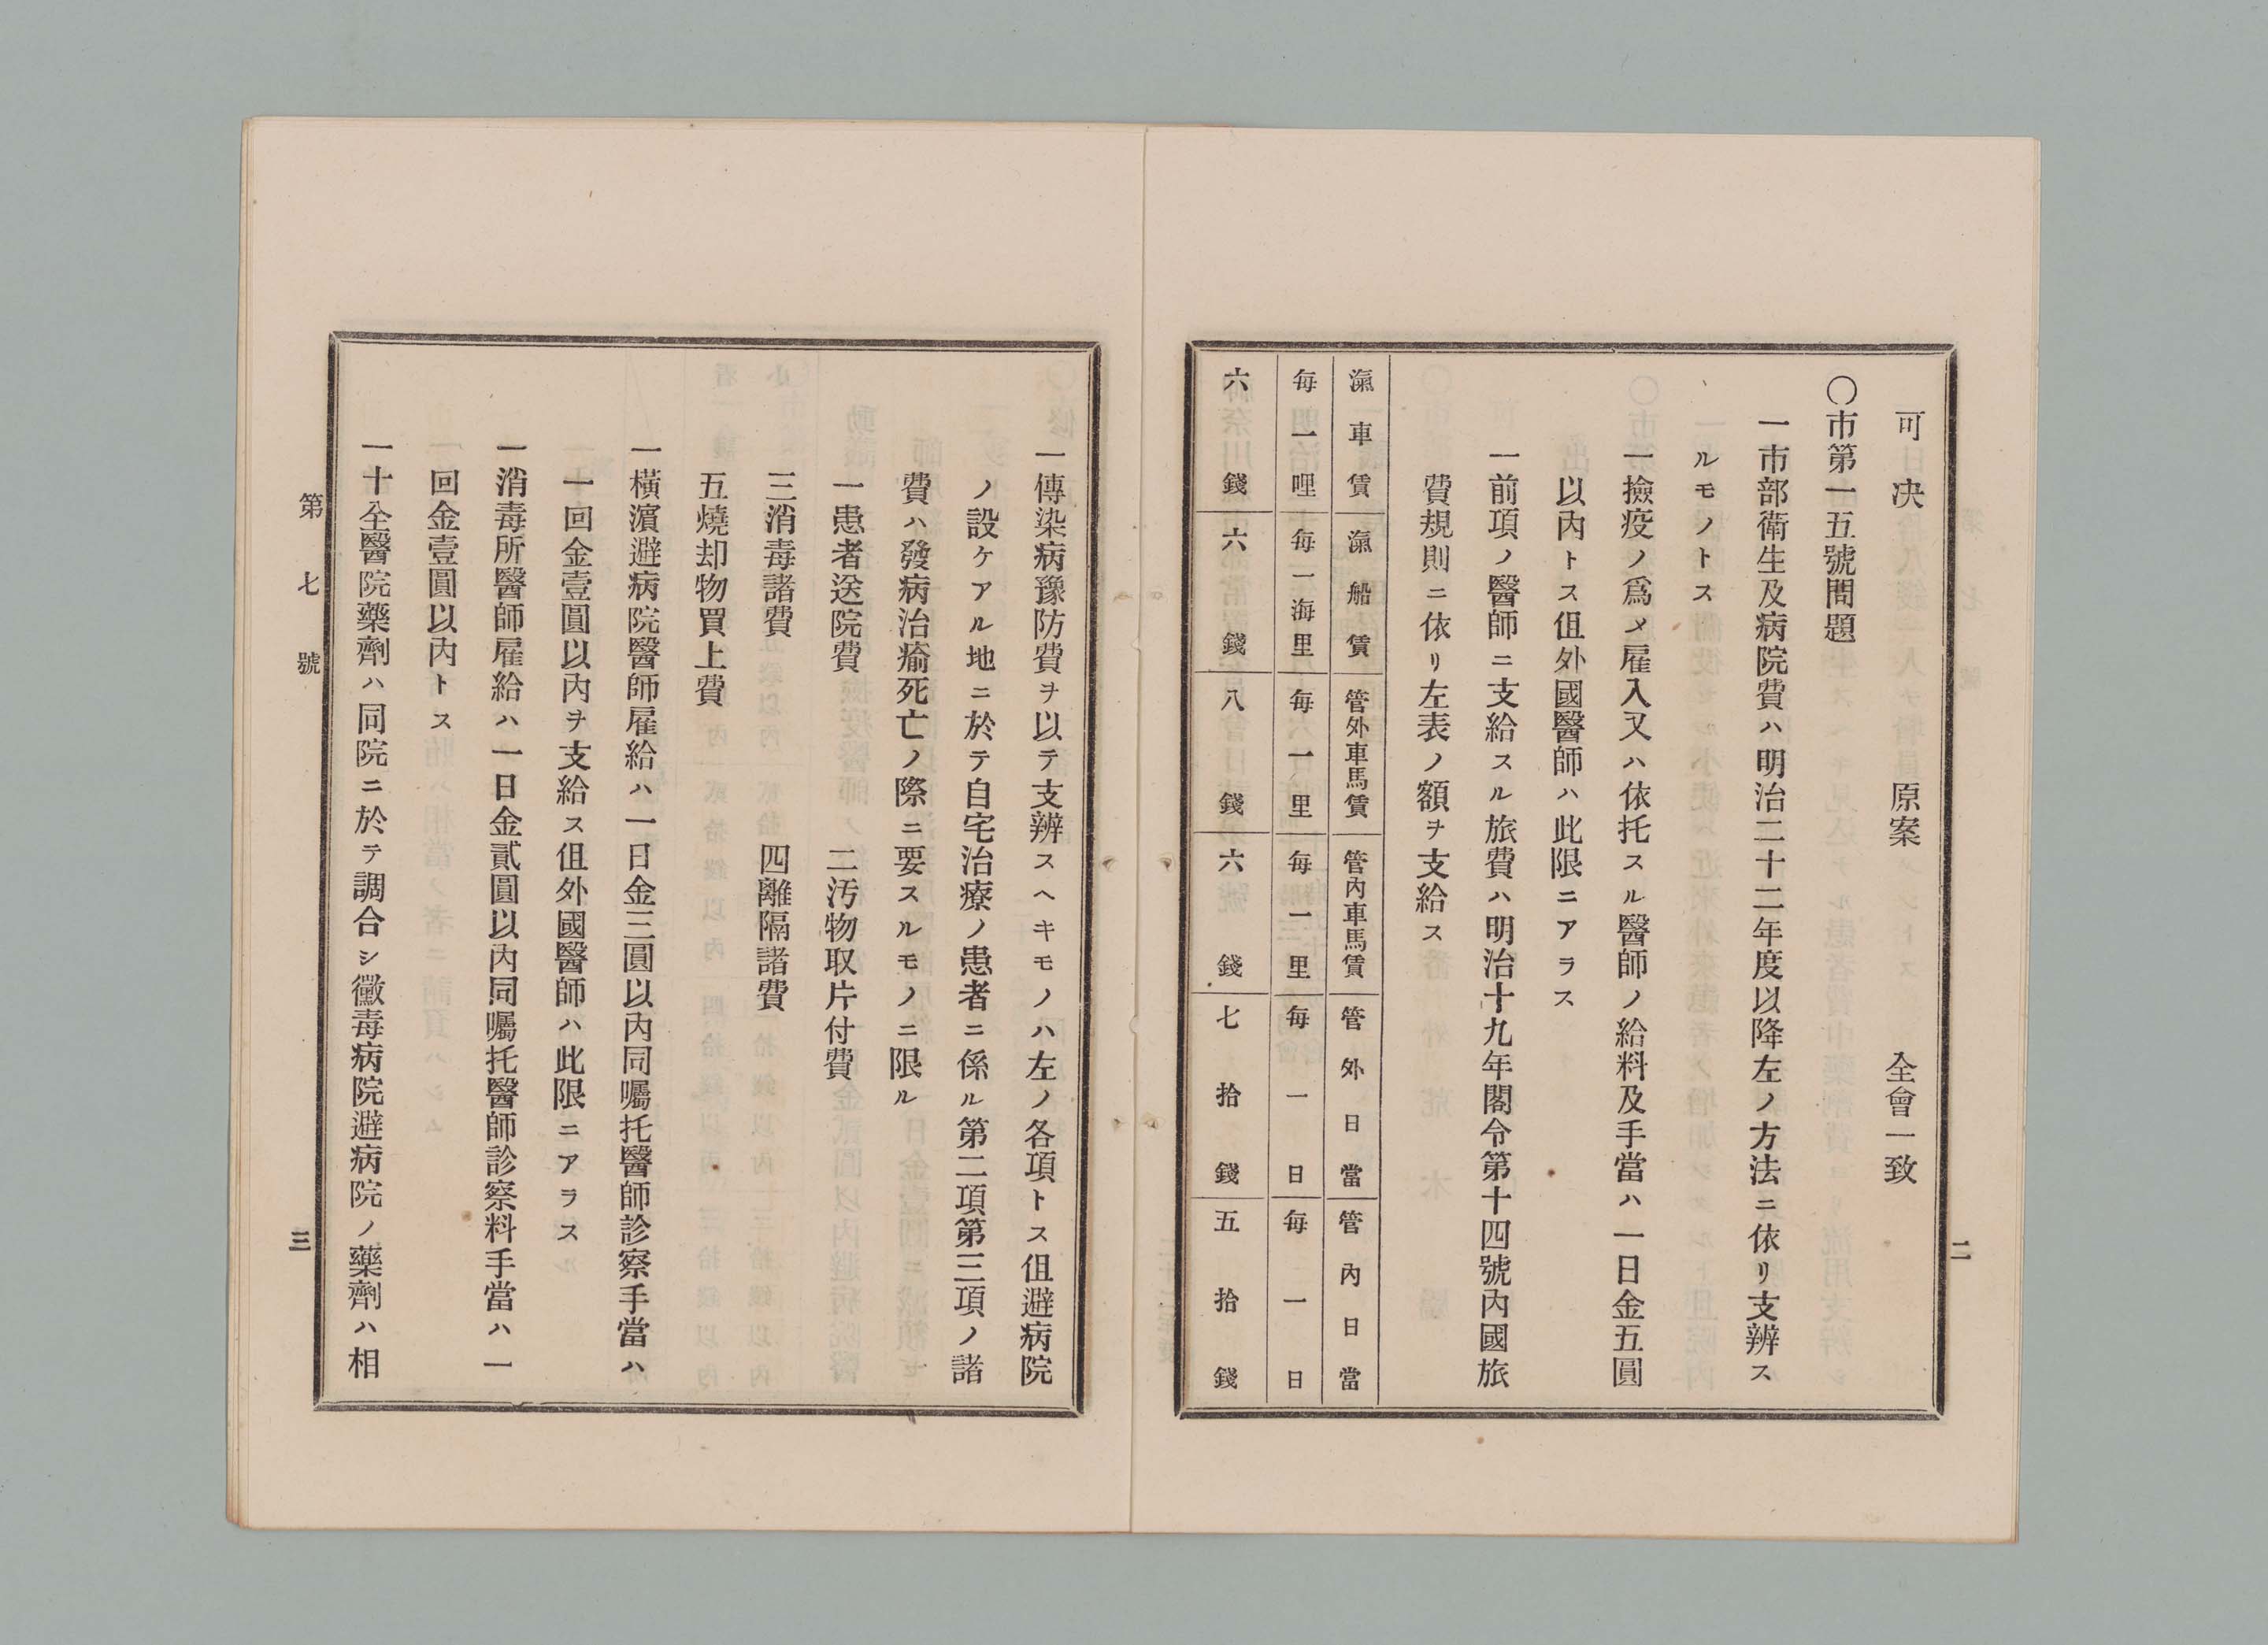 可決　原案　全會一致
〇市第一五號問題
一市部衛生及病院費ハ明治二十二年度以降左ノ方法ニ依リ支辨ス
ルモノトス
一撿疫ノ爲メ雇入又ハ依托スル醫師ノ給料及手當ハ一日金五圓
以內トス伹外國醫師ハ此限ニアラス
一前項ノ醫師ニ支給スル旅費ハ明治十九年閣令第十四號內國旅
費規則ニ依リ左表ノ額ヲ支給ス
滊車賃　滊船賃　管外車馬賃　管內車馬賃　管外日當　管內日當
每一哩　每一海里　每一里　每一里　每一日　每一日
六錢　六錢　八錢　六錢　七拾錢　五拾錢
二
一傳染病豫防費ヲ以テ支辨スヘキモノハ左ノ各項トス伹避病院
ノ設ケアル地ニ於テ自宅治療ノ患者ニ係ル第二項第三項ノ諸
費ハ發病治瘉死亡ノ際ニ要スルモノニ限ル
一患者送院費　二汚物取片付費
三消毒諸費　四離隔諸費
五燒却物買上費
一橫濱避病院醫師雇給ハ一日金三圓以內同囑托醫師診察手當ハ
一回金壹圓以內ヲ支給ス伹外國醫師ハ此限ニアラス
一消毒所醫師雇給ハ一日金貳圓以內同囑托醫師診察料手當ハ一
回金壹圓以內トス
一十全醫院藥劑ハ同院ニ於テ調合シ黴毒病院避病院ノ藥劑ハ相
第七號
三